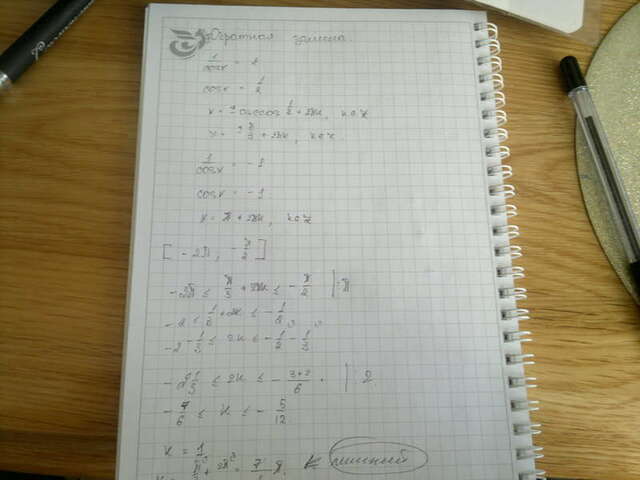 Обратная замена.
1/cosx = 2
cosx = 1/2
x = ± arccos 1/2 + 2πk, k∈Z
x = ± π/3 + 2πk, k∈Z
1/cosx = -1
cosx = -1
x = π + 2πk, k∈Z
[ -2π, -π/2 ]
-2π ≤ π/3 + 2πk ≤ -π/2 | :π
-2 ≤ 1/3 + 2k ≤ -1/2
-2 - 1/3 ≤ 2k ≤ -1/2 - 1/3
≤ 2k ≤ - 3+2/6 | :2
-7/6 ≤ k ≤ -5/12
k = 1
π/3 + 2π = 7
лишний